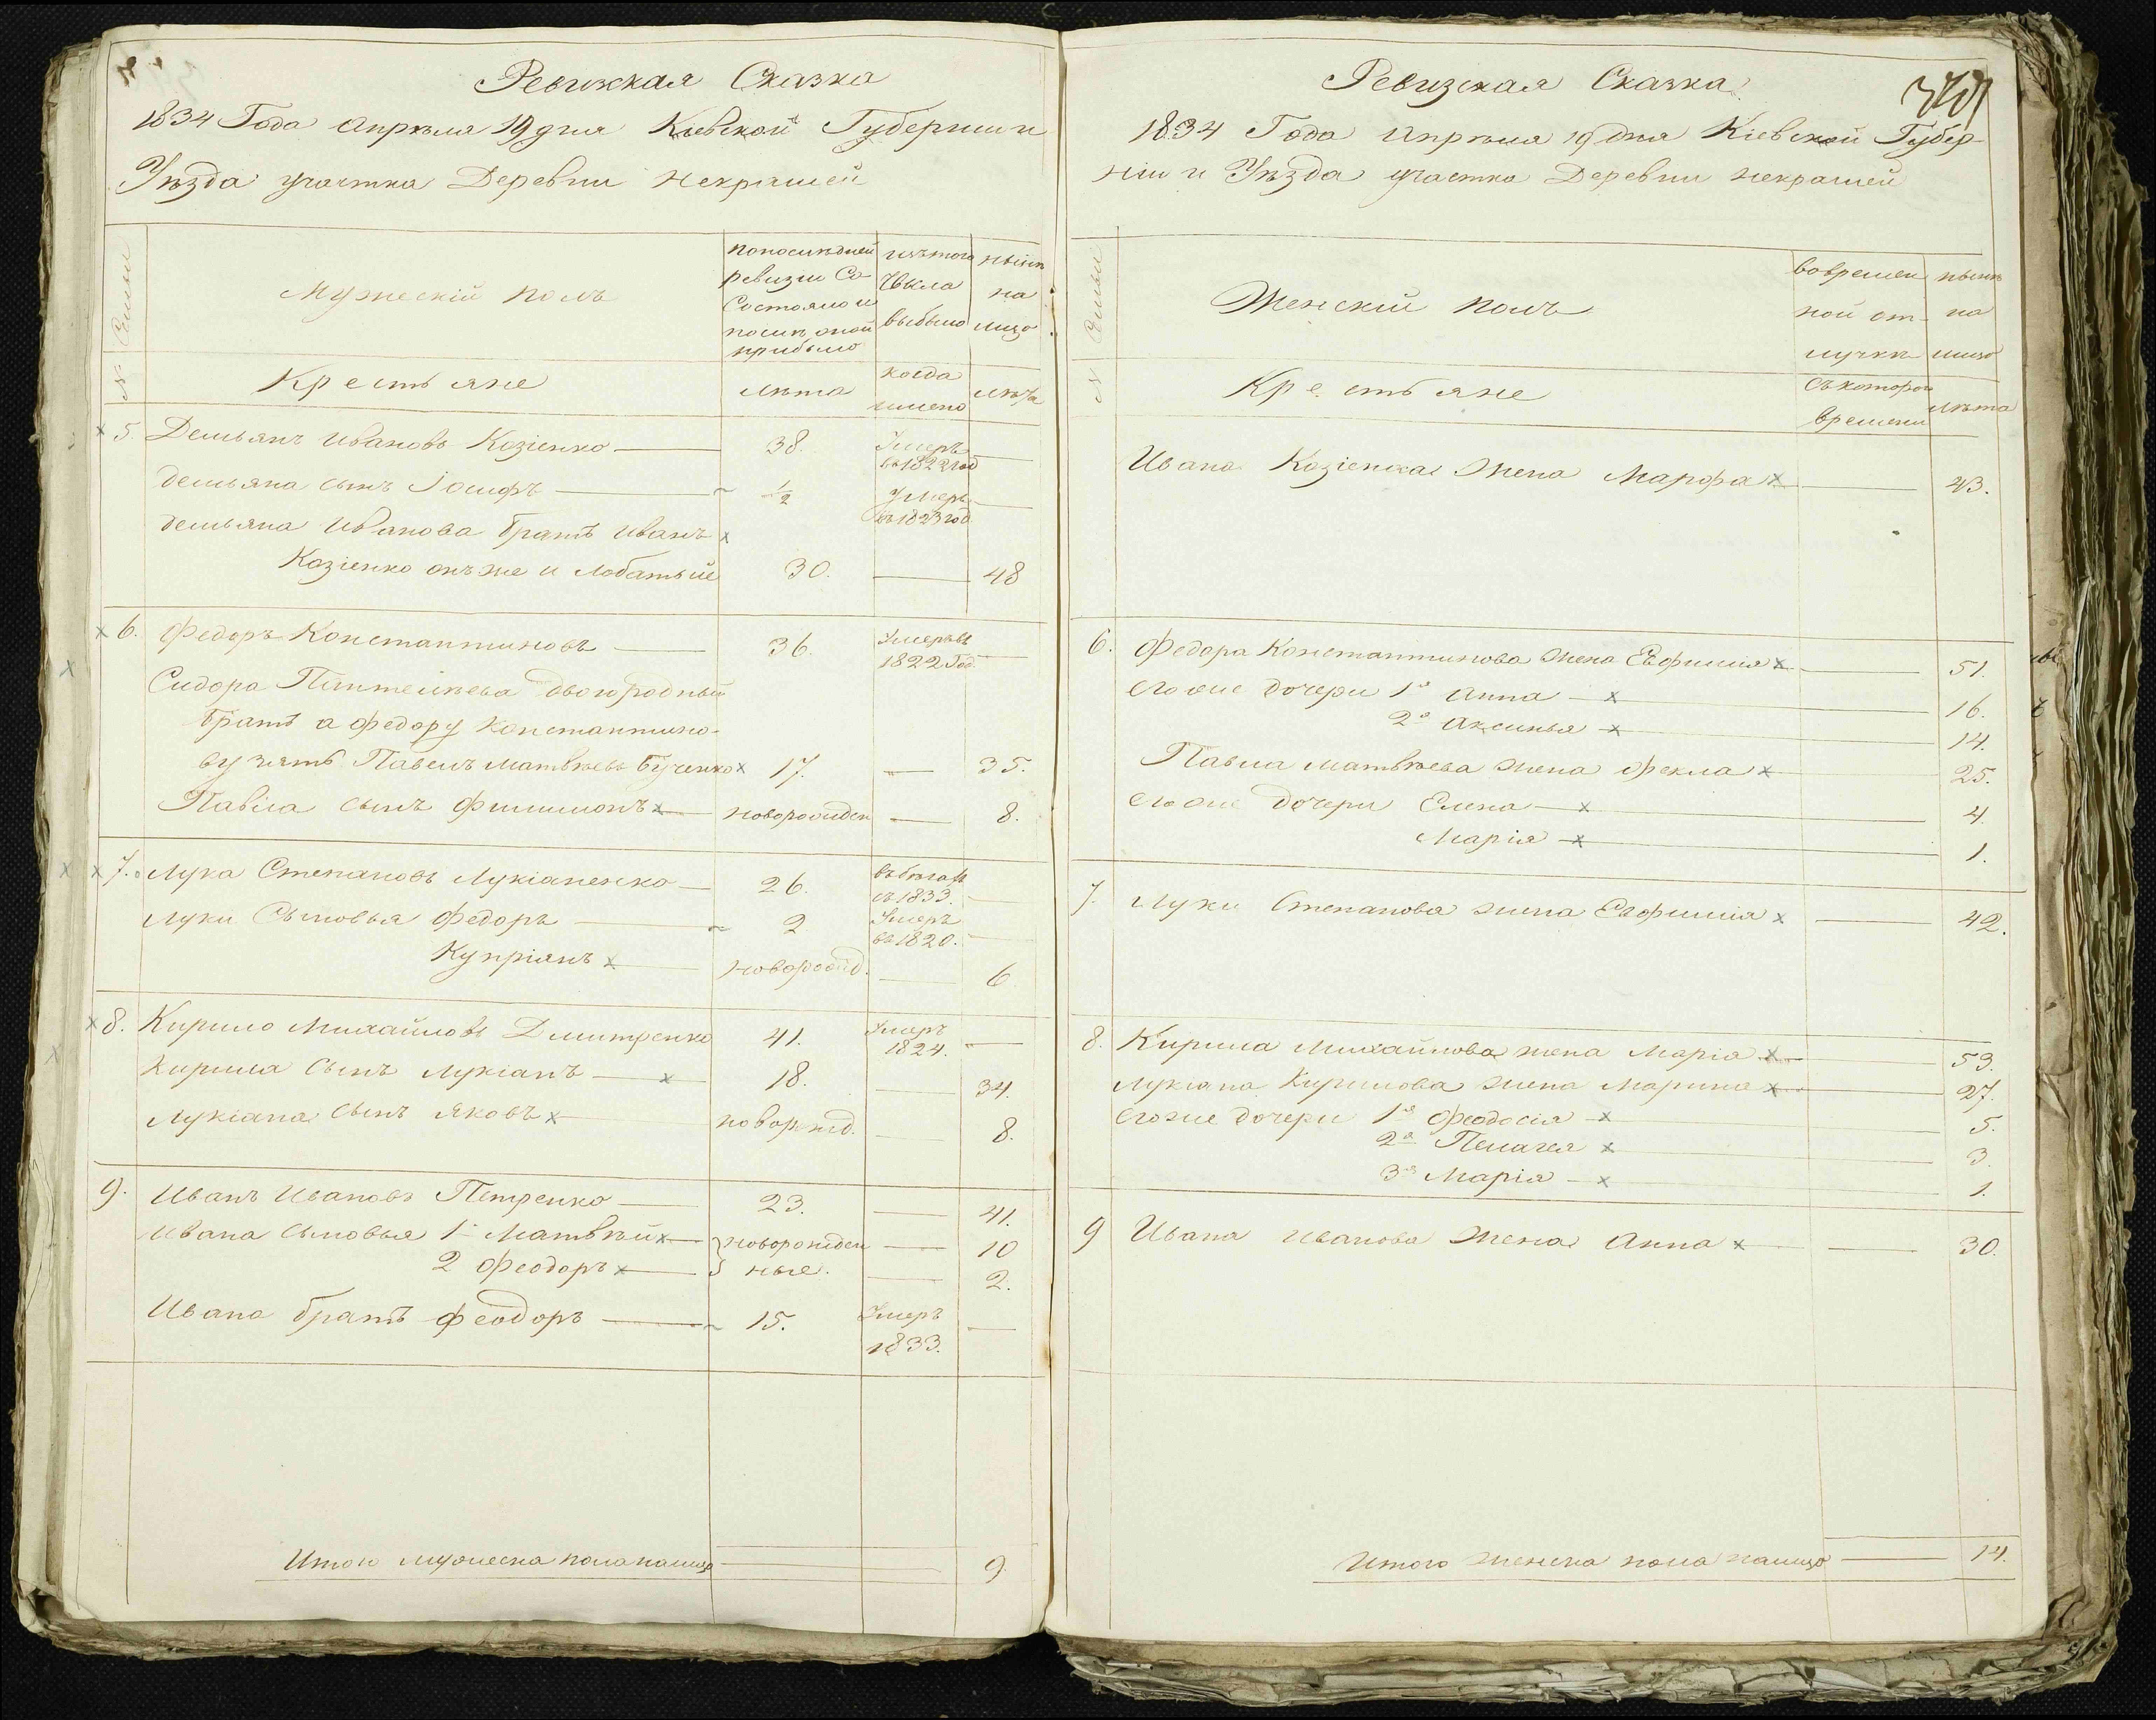 Ревижкая Сказка
1834 Года апрѣля 19 дня Кіевской Губерніи и
Уѣзда участка Деревни Некрашей
№ Семьи
Мужескій полъ
попослѣдней
ревизіи Со
Состояло и
послѣ оной
прибыло
изътого
числа
выбыло
нынѣ
на
лицо
Крестьяне
лѣта
когда
имено
лѣта
5. Демьянъ Ивановъ Козіенко 38. Умеръ въ 1822 год
Демьяна сынъ Іосифъ ½ Умеръ въ 1823 год
Демьяна Иванова братъ Иванъ
Козіенко онъ же и Лобатый 30. 48
6. Федоръ Константиновъ 36. Умеръ въ 1822 Год
Сидора Пантелѣева двоюродный
братъ а Федору Константино-
ву зять Павелъ Матвѣевъ Бученко 17. 35.
Павла сынъ Филимонъ новорожден 8.
7. Лука Степановъ Лукіаненко 26. въ бѣгах съ 1833.
Луки Сыновья Федоръ 2 Умеръ въ 1820.
Купріянъ новорожд. 6
8. Кирило Михайловъ Дмитренко 41. Умеръ 1824.
Кирила Сынъ Лукіанъ 18. 34.
Лукіана сынъ Яковъ новорожд. 8.
9. Иванъ Ивановъ Петренко 23. 41.
Ивана сыновья 1 Матвѣй новорожден 10
2 Феодоръ ные. 2.
Ивана братъ Феодоръ 15. Умеръ 1833.
Итого мужеска пола налицо 9.
Ревизская Сказка
1834 Года Апрѣля 19 дня Кіевской Губер-
ніи и Уѣзда участка Деревни Некрашей
№ Семьи
Женскій полъ
вовремен
ной от-
лучкѣ
нынѣ
на
лицо
Крестьяне
съкоторого
времени
лѣта
Ивана Козіенка Жена Марфа 43.
6. Федора Константинова жена Евфимия 51.
его же дочери 1я Анна 16.
2я Аксинья 14.
Павла Матвѣева жена Фекла 25.
его же дочери Елена 4.
Марія 1.
7. Луки Степанова жена Евфимія 42.
8. Кирила Михайлова жена Марія 53.
Лукіана Кирилова жена Марина 27.
его же дочери 1я Феодосія 5.
2я Пелагея 3.
3я Марія 1.
9 Ивана Иванова Жена Анна 30.
Итого женска пола налицо 14.